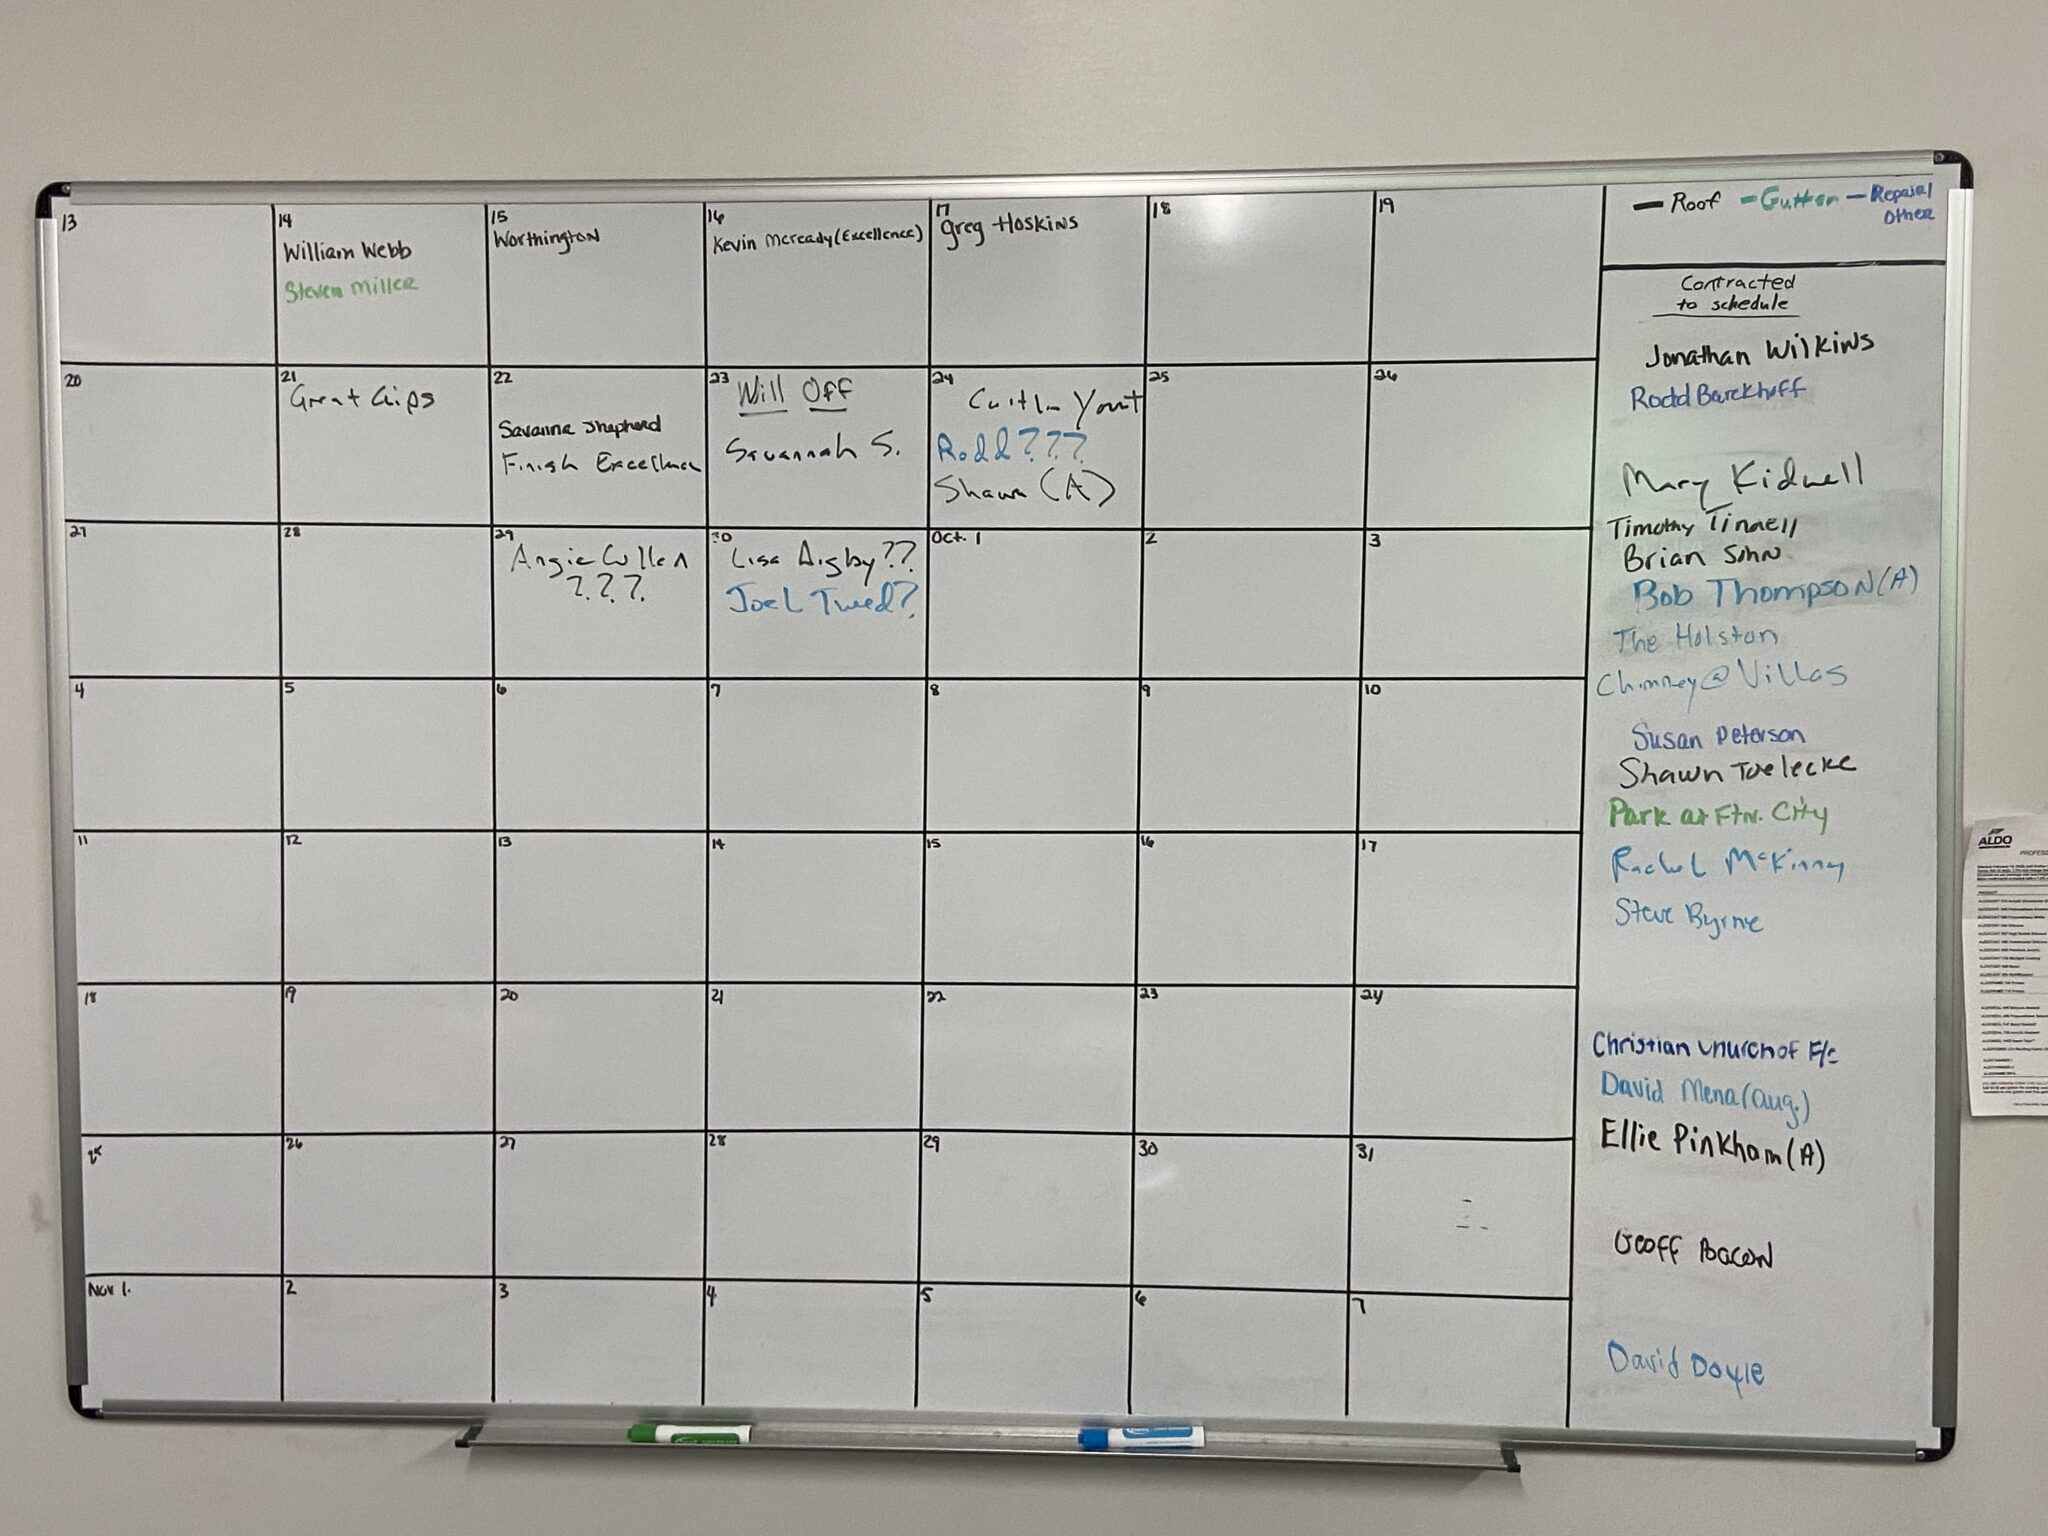 13
14
William Webb
Steven Miller
15
Worthington
16
Kevin Mcready (Excellence)
17
Greg Hoskins
18
19
Roof Gutter Repair/
Other
20
21
Great Clips
22
Savanna Shepherd
Finish Excellence
23
Will Off
Savannah S.
24
Caitlin Yount
Rodd???
Shawn (A)
25
26
27
28
29
Angie Cullen
???
30
Lisa Digby??
Joel Tweed?
Oct. 1
2
3
4
5
6
7
8
9
10
11
12
13
14
15
16
17
18
19
20
21
22
23
24
25
26
27
28
29
30
31
Nov 1.
2
3
4
5
6
7
Contracted
to schedule
Jonathan Wilkins
Rodd Barckhoff
Mary Kidwell
Timothy Tinnell
Brian Sohn
Bob Thompson (A)
The Holston
Chimney @ Villas
Susan Peterson
Shawn Toelecke
Park at Ftn. City
Rachel McKinney
Steve Byrne
Christian Church of F/C
David Mena (Aug.)
Ellie Pinkham (A)
Geoff Bacon
David Doyle
ALDO